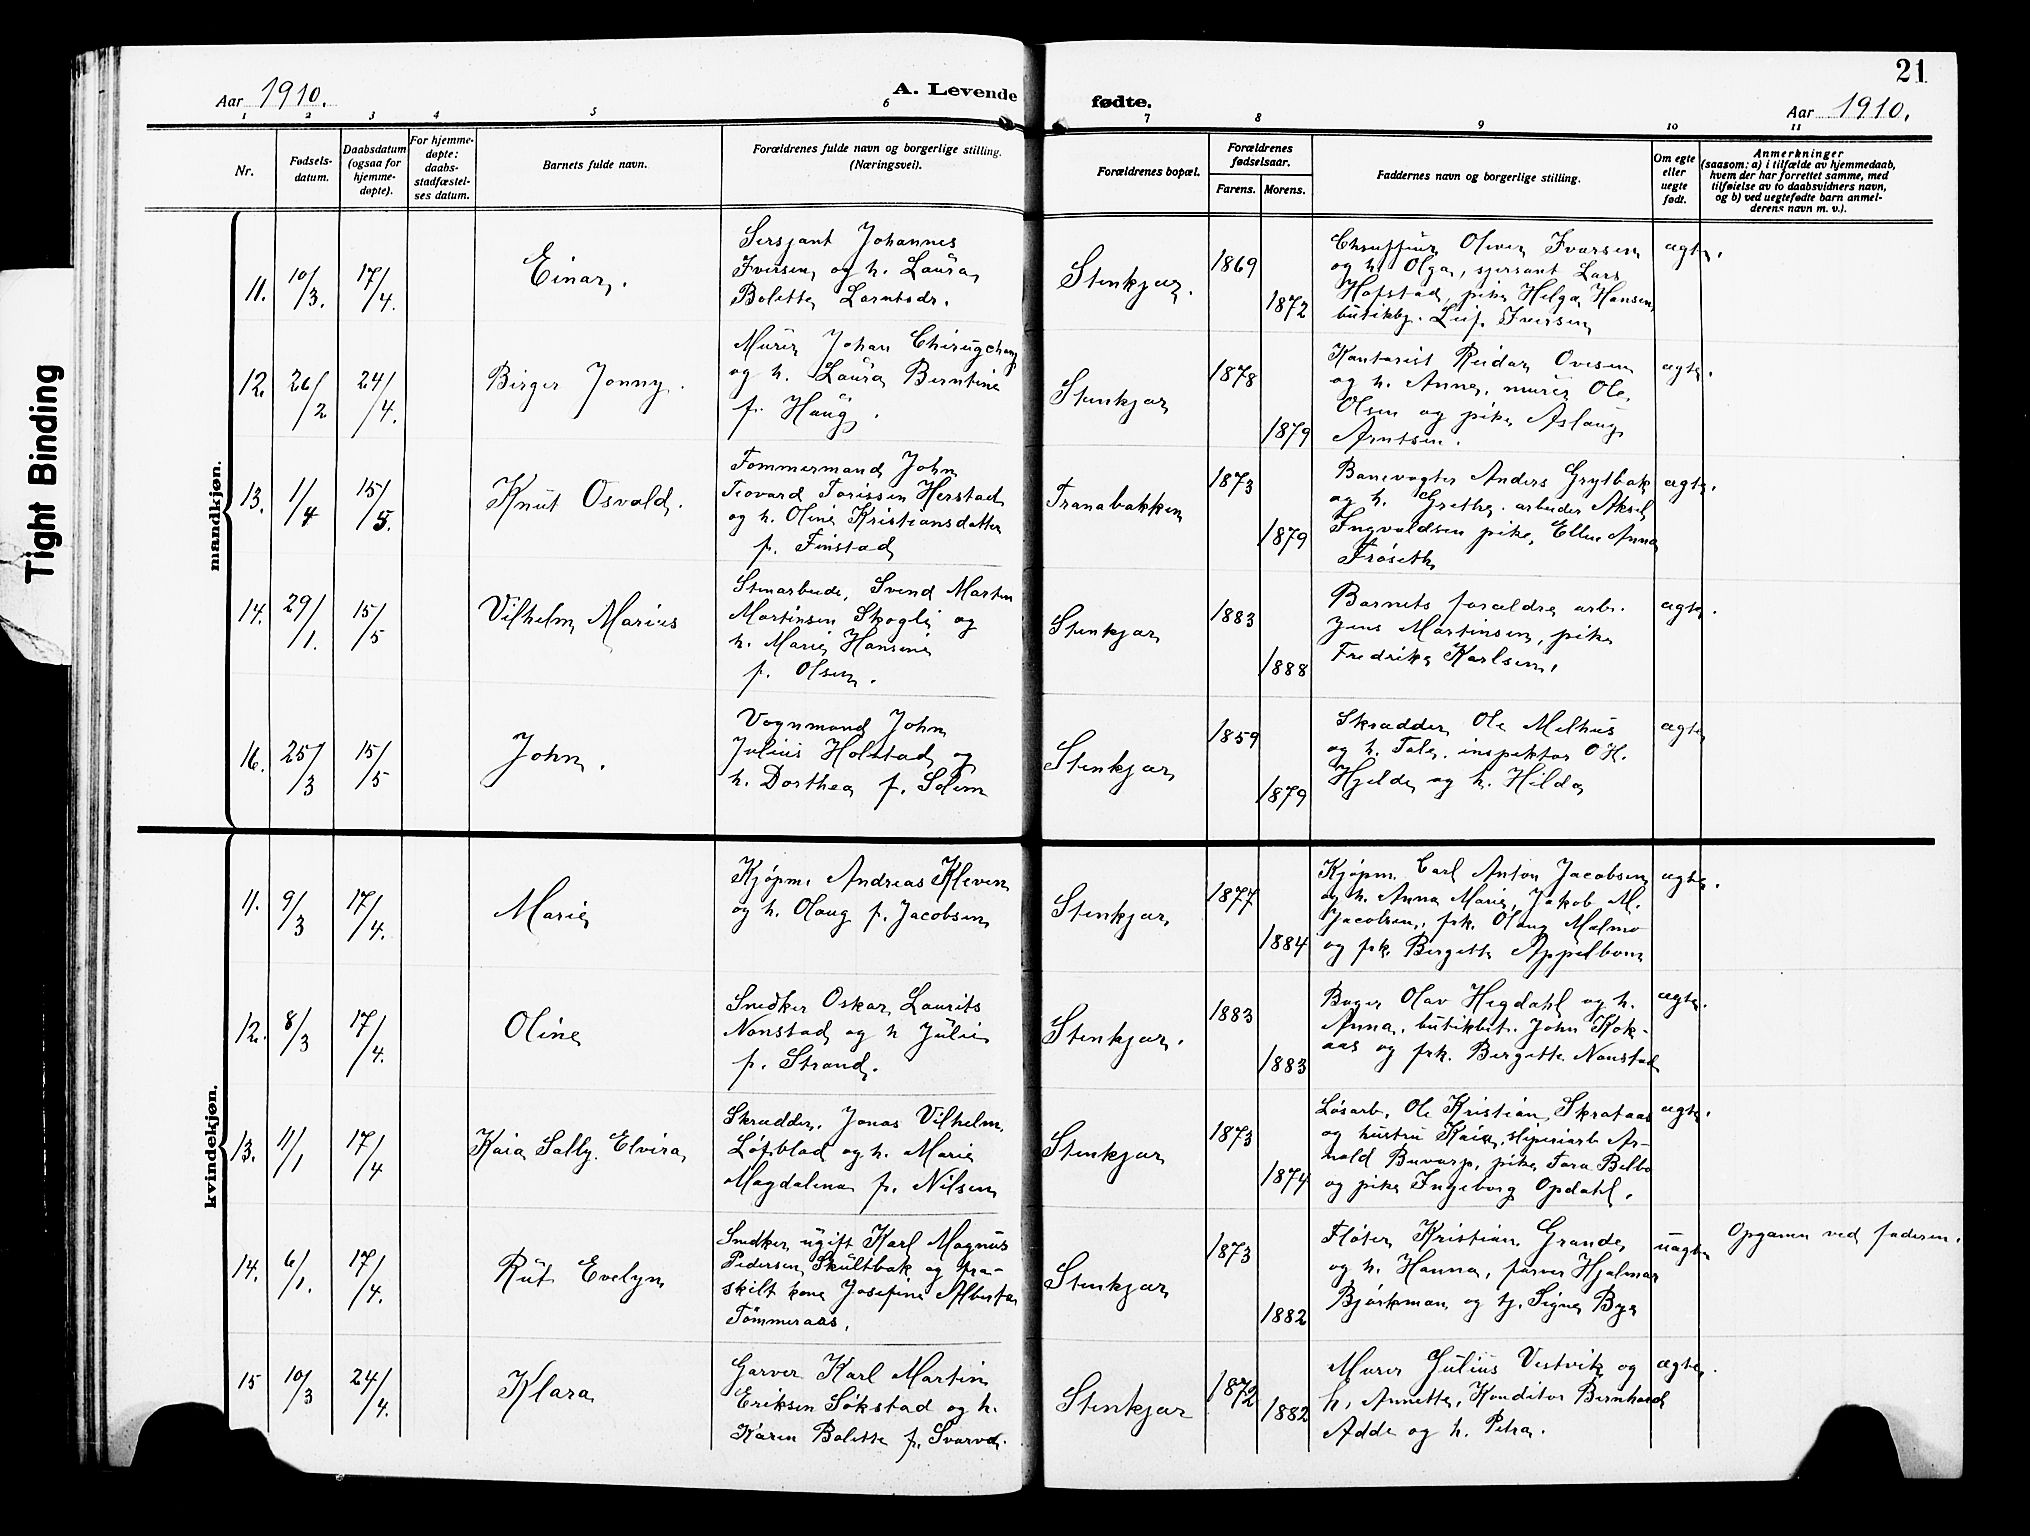 21
Aar 1910.
A. Levende
fødte.
Aar 1910.
1 2 3 4 5 6 7 8 9 10 11
Nr.
Fødsels-
datum.
Daabsdatum
(ogsaa for
hjemme-
døpte).
For hjemme-
døpte:
daabs-
stadfæstel-
ses datum.
Barnets fulde navn.
Forældrenes fulde navn og borgerlige stilling.
(Næringsvei).
Forældrenes bopæl.
Forældrenes
fødselsaar.
Farens. Morens.
Faddernes navn og borgerlige stilling.
Om egte
eller
uegte
født.
Anmerkninger
(saasom: a) i tilfælde av hjemmedaab,
hvem der har forrettet samme, med
tilføielse av to daabsvidners navn,
og b) ved uegtefødte barn anmel-
derens navn m. v.).
Tight Binding
mandkjøn.
11. 10/3. 17/4.
Einar.
Sersjant Johannes
Iversen og h. Laura
Bolette Larntsdr.
Stenkjær.
1869
1872
Oliver Ivarsen
og h. Olga, sjersant Lars
Hofstad, pike Helga Hansen
butikbg. Leif Iversen
ægte.
12. 26/2 24/4.
Birger Jonny.
Murer Johan
og h. Laura Berntine
f. Haug.
Stenkjær
1878
1879
Kontorist Reidar Ovesen
og h. Anna, murer Ole
Olsen og pike Aslaug
Arntsen.
ægte.
13. 1/4 15/5.
Knut Osvald.
Tømmermand John
Teovard Torissen Herstad
og h. Oline Kristiansdatter
f. Finstad
Tranabakken
1873
1879
Banevogter Anders Grytbak
og h. Grethe. arbeider Aksel
Ingvaldsen pike, Ellen Anna
Frøseth
ægte.
14. 29/1. 15/5
Vilhelm Marius
Stenarbeide, Svend Martin
Martinsen Skogli og
h. Marie Hansine
f. Olsen.
Stenkjær
1883
1888
Barnets forældre arb.
Jens Martinsen, pike
Fredrike Karlsen.
ægte.
16. 25/3 15/5
John.
Vognmand John
Julius Holstad og
h. Dorthea f. Solem
Stenkjær
1859
1879
Skrædder Ole Melhus
og h. Tale. inspektør O H.
Hjelde og h. Hilda
ægte
kvindekjøn.
11. 9/3 17/4.
Marie
Kjøpm. Andreas Kleven
og h. Olaug f. Jacobsen
Stenkjær
1877
1884
Kjøpm. Carl Anton Jacobsen
og h. Anna Marie, Jakob M.
Jacobsen, frk. Olaug Malmo
og frk. Bergette Appelbom
ægte.
12. 8/3 17/4.
Oline
Snedker Oskar Laurits
Nonstad og h Julie
f. Strand.
Stenkjær.
1883
1883
Bager Olav Hegdahl og h.
Anna. butikbet. John Rok-
aas og frk. Bergette Nonstad
ægte.
13. 11/1 17/4
Kaia Sally Elvira
Skrædder. Jonas Vilhelm
Løfblad og h. Marie
Magdalena f. Nilsen
Stenkjær
1873
1874
Løsarb. Ole Kristian Skrataas
og hustru Kaia, sliperiarb Ar-
nold Buvarp, pike Tora Belbo
og pike Ingeborg Opdahl.
ægte.
14. 6/1. 17/4.
Rut Evelyn
Snedker ugift Karl Magnus
Pedersen Skultbak og fra-
skilt kone Josefine Alberta
Tømmeraas.
Stenkjær
1873
1882
Fløter Kristian Grande
og h. Hanna, farver Hjalmar
Bjørkman og tj. Signe Bye
uægte
Opgaven ved faderen.
15 10/3 24/4.
Klara
Garver Karl Martin
Eriksen Søkstad og h.
Karen Bolette f. Svarva.
Stenkjær
1872
1882
Murer Julius Vestvik og
h. Annette, Konditor Bernhard
Adde og h. Petra.
ægte.